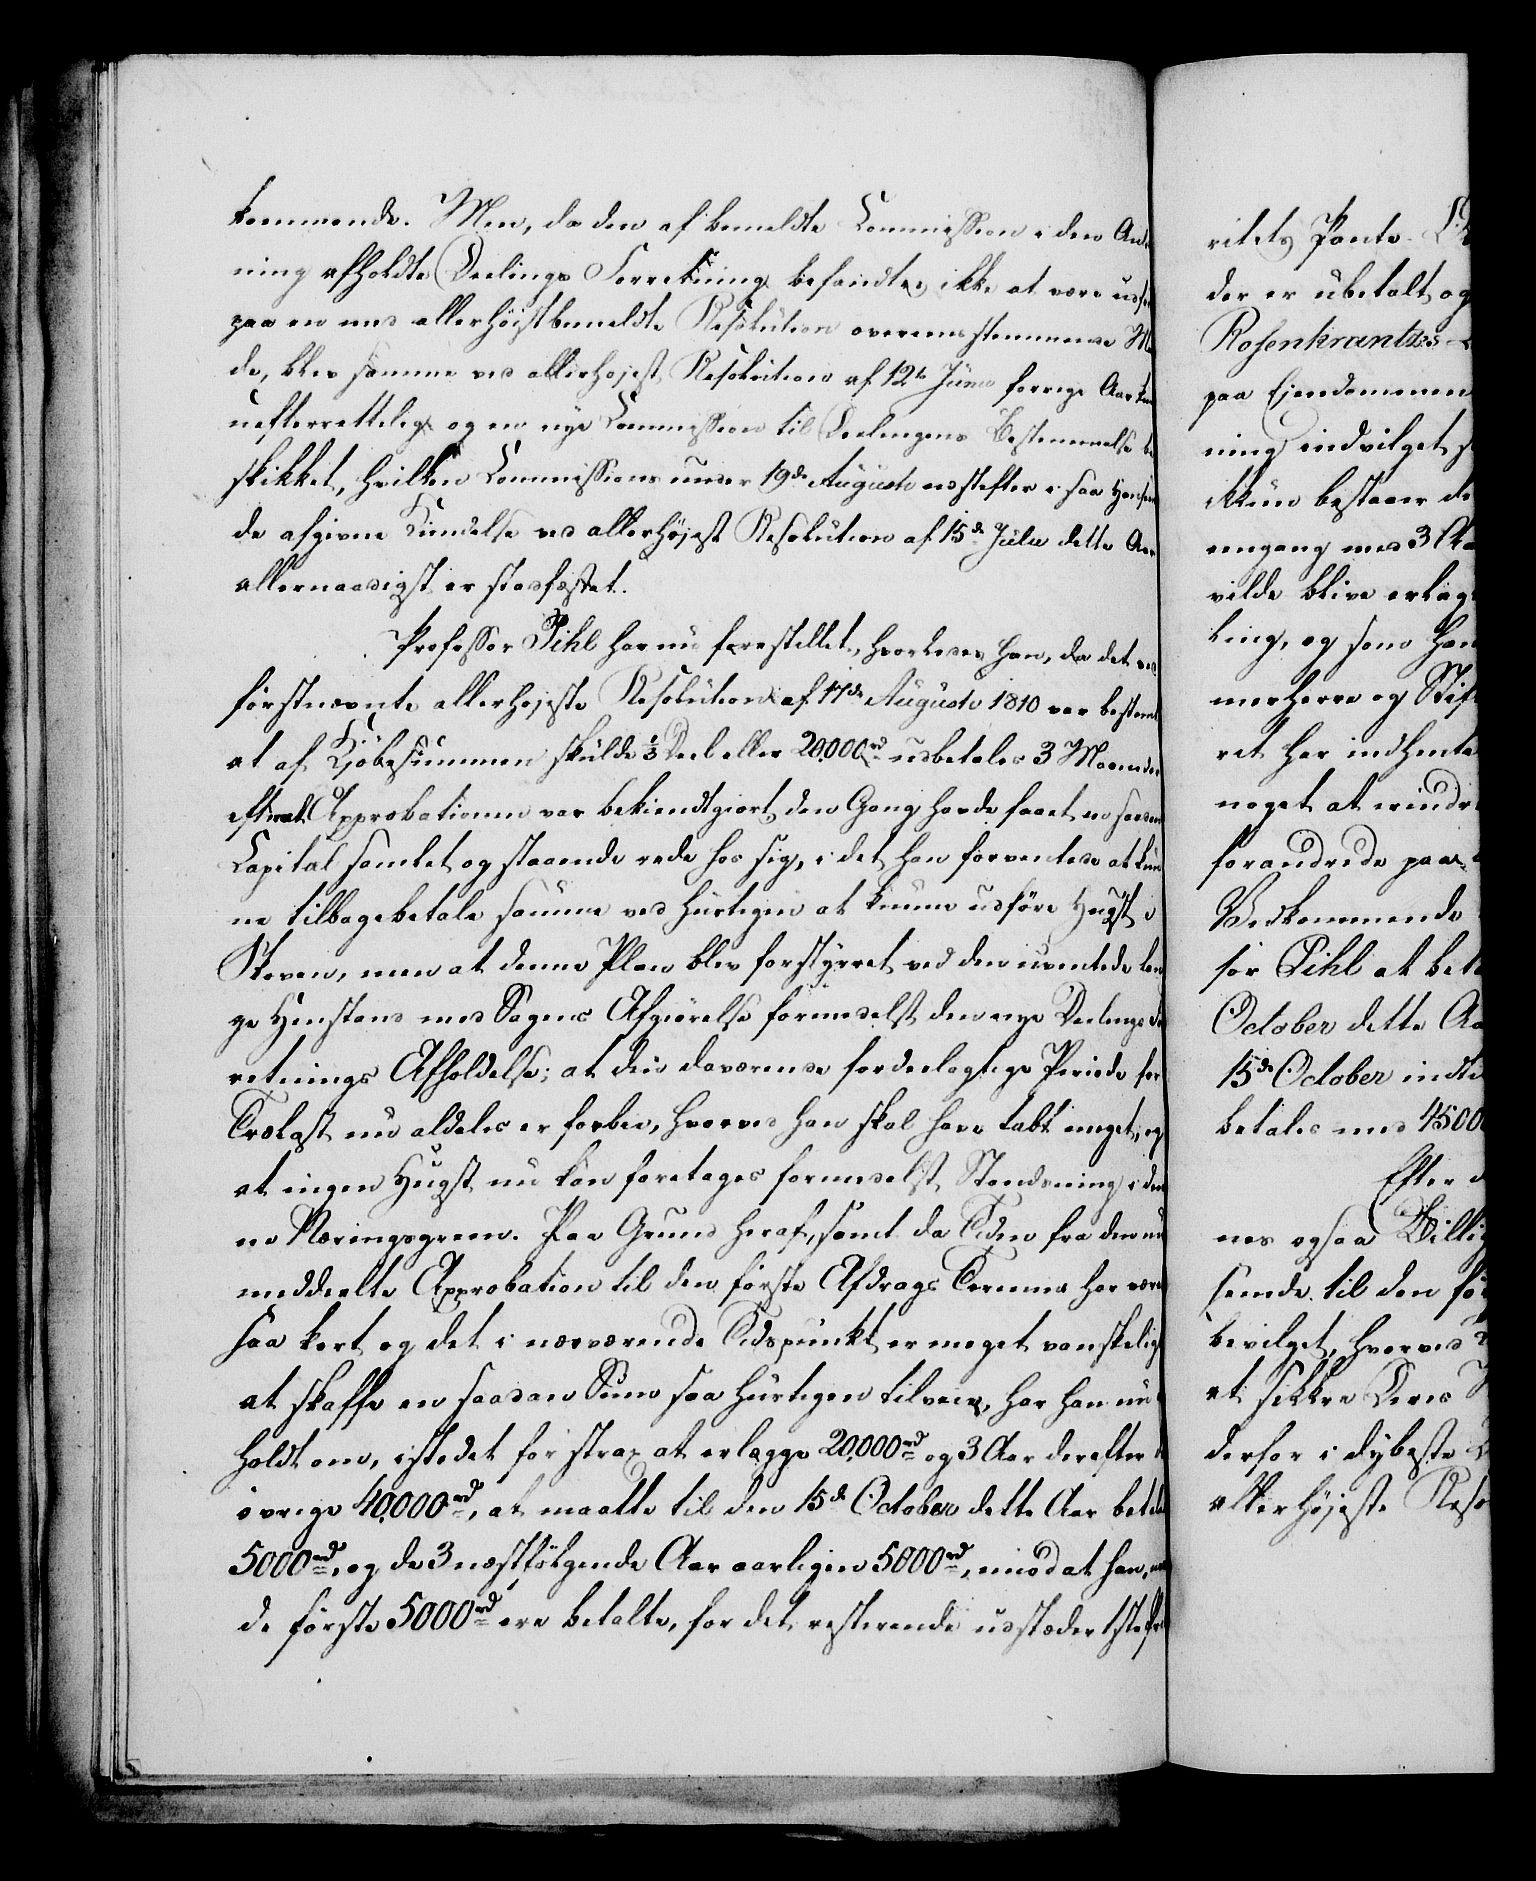 kommende. Men, da den af bemeldte Commission i den An-
ning afholdte Deelings Forretning befandtes ikke at være udfø
paa en med allerhøistbemeldte Resolution overeensstemmende M
de, blev samme ved allerhøjest Resolution af 12te Junii forrige Aar
uefterrettelig og en nye Commission til Deelingens Bestemmelse be
skikket, hvilken Commissions under 19de Augusti næstefter i saa Henseen
de afgivne Kiendelse ved allerhøjest Resolution af 15de Julii dette Aar
allernaadigst er stadfæstet.
Professor Pihl har nu forestillet, hvorledes han, da det ved
førstnævnte allerhøjeste Resolution af 17de Augusti 1810 var bestemt
at af Kjøbesummen skulde 1/3 Deel eller 20,000rd udbetales 3 Maaneder
efterat Approbationen var bekiendtgiort, den Gang havde faaet en saadan
Capital samlet og staaende rede hos sig, i det han forventede at kun
ne tilbagebetale samme ved hurtigen at kunne udføre Hugst i
Skoven, men at denne Plan blev forstyrret ved den uventede lan
ge Henstand med Sagens Afgiørelse formedelst den nye Deelings For
retnings Afholdelse; at den daværende fordeelagtige Periode for
Trælast nu aldeles er forbie, hvorved han skal have tabt meget, og
at ingen Hugst nu kan foretages formedelst Standsning i den
ne Næringsgreen. Paa Grund heraf, samt da Tiden fra den nu
meddeelte Approbation til den første Afdrags Termin har været
saa kort og det i nærværende Tidspunkt er meget vanskeligt
at skaffe en saadan Sum saa hurtigen tilveie, har han nu
holdt om, istedet for strax at erlægge 20,000rd og 3 Aar derefter de
øvrige 40,000rd, at maatte til den 15de October dette Aar betale
5000rd, og de 3 næstfølgende Aar aarligen 5000rd, imod at han, naar
de første 5000rd ere betalte, for det resterende udstæder 1ste Prio
ritets Pante-
der er ubetalt og
Rosenkrantzes
paa Ejendommen
ning indvilget
ikkun bestaaer
eengang med 3
vilde blive erlag
ling, og som han
merherre og Stift
ret har indhente
noget at erindre
forandrede paa
Vedkommende
sor Pihl at beta
October dette Aa
15de October indtil
betales med 4500
Efter
nes ogsaa Villig
seende til den fø
bevilget, hvorved
at sikkre Deres
derfor i dybeste
allerhøjeste Reso